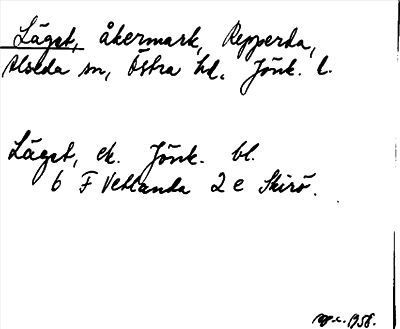 Läget, åkermark, Repperda,
Alseda sn, Östra hd, Jönk. l.
Läget, ek. Jönk. bl.
6 F Vetlanda 2 e Skirö.
1958.